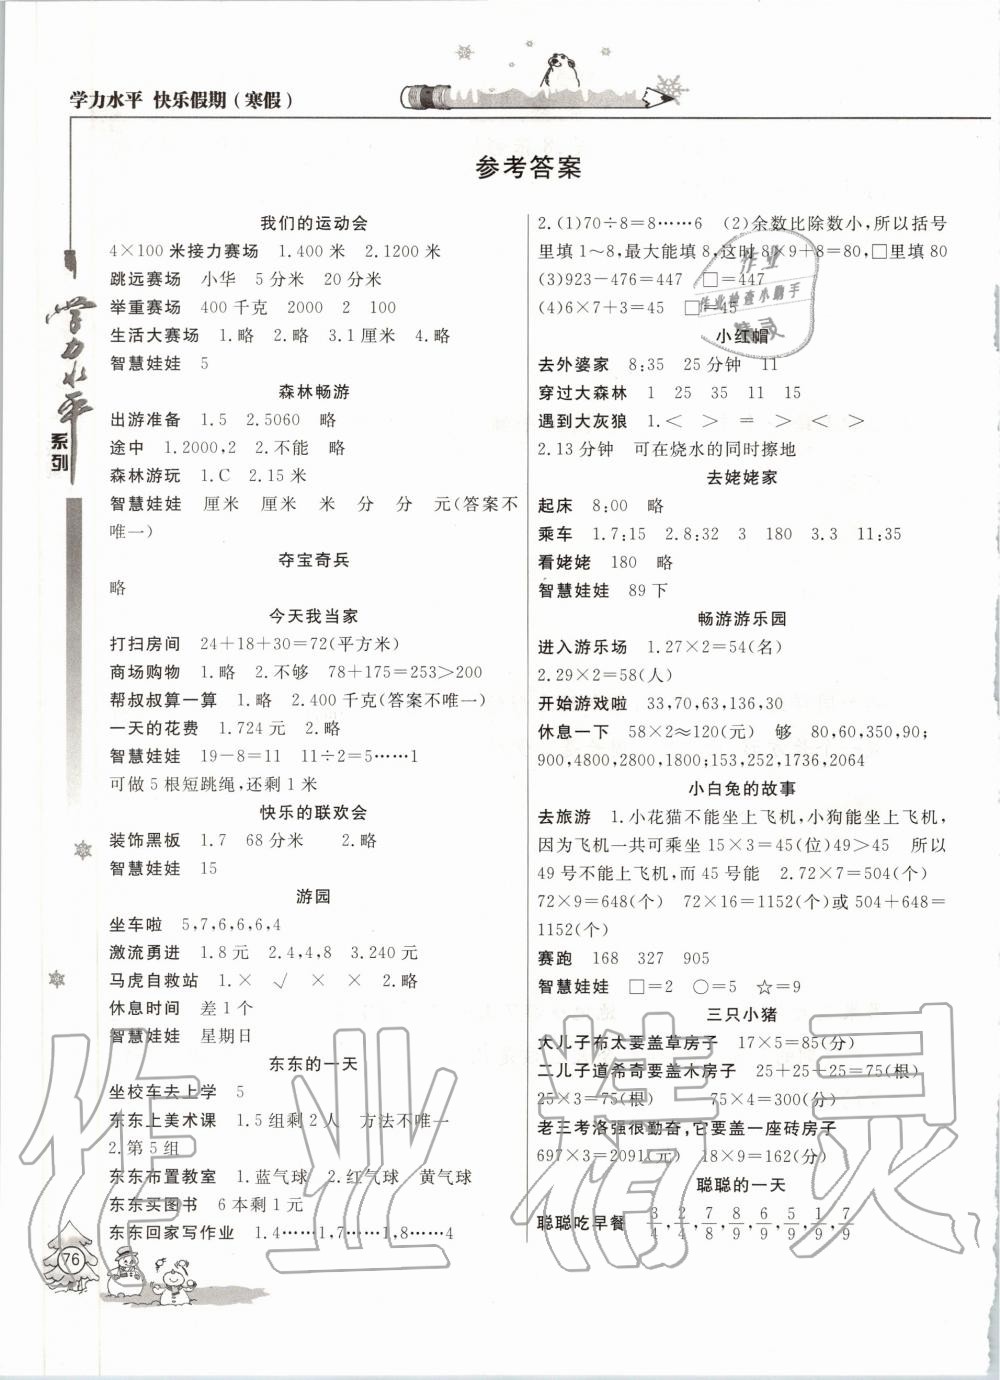 学力水平 快乐假期(寒假)
参考答案
我们的运动会
4×100 米接力赛场 1.400 米 2.1200 米
跳远赛场 小华 5 分米 20 分米
举重赛场 400 千克 2000 2 100
生活大赛场 1.略 2.略 3.1 厘米 4.略
智慧娃娃 5
森林畅游
出游准备 1.5 2.5060 略
途中 1.2000,2 2.不能 略
森林游玩 1.C 2.15 米
智慧娃娃 厘米 厘米 米 分 分 元(答案不
唯一)
夺宝奇兵
略
今天我当家
打扫房间 24+18+30=72(平方米)
商场购物 1.略 2.不够 78+175=253>200
帮叔叔算一算 1.略 2.400 千克(答案不唯一)
一天的花费 1.724 元 2.略
智慧娃娃 19-8=11 11÷2=5……1
可做 5 根短跳绳,还剩 1 米
快乐的联欢会
装饰黑板 1.7 68 分米 2.略
智慧娃娃 15
游园
坐车啦 5,7,6,6,6,4
激流勇进 1.8 元 2.4,4,8 3.240 元
马虎自救站 1.× √ × × 2.略
休息时间 差 1 个
智慧娃娃 星期日
东东的一天
坐校车去上学 5
东东上美术课 1.5 组剩 2 人 方法不唯一
2.第 5 组
东东布置教室 1.蓝气球 2.红气球 黄气球
东东买图书 6 本剩 1 元
东东回家写作业 1.4……1,7……1,8……4
2.(1)70÷8=8……6 (2)余数比除数小,所以括号
里填 1~8,最大能填 8,这时 8×9+8=80,□里填 80
(3)923-476=447 □=447
(4)6×7+3=45 □=45
小红帽
去外婆家 8:35 25 分钟 11
穿过大森林 1 25 35 11 15
遇到大灰狼 1.< > = > < >
2.13 分钟 可在烧水的同时擦地
去姥姥家
起床 8:00 略
乘车 1.7:15 2.8:32 3 180 3.3 11:35
看姥姥 180 略
智慧娃娃 89 下
畅游游乐园
进入游乐场 1.27×2=54(名)
2.29×2=58(人)
开始游戏啦 33,70,63,136,30
休息一下 58×2≈120(元) 够 80,60,350,90;
900,4800,2800,1800;153,252,1736,2064
小白兔的故事
去旅游 1.小花猫不能坐上飞机,小狗能坐上飞机,
因为飞机一共可乘坐 15×3=45(位)49>45 所以
49 号不能上飞机,而 45 号能 2.72×7=504(个)
72×9=648(个) 72×16=1152(个)或 504+648=
1152(个)
赛跑 168 327 905
智慧娃娃 □=2 ○=5 ☆=9
三只小猪
大儿子布太要盖草房子 17×5=85(分)
二儿子道希奇要盖木房子 25+25+25=75(根)
25×3=75(根) 75×4=300(分)
老三考洛强很勤奋,它要盖一座砖房子
697×3=2091(元) 18×9=162(分)
聪聪的一天
聪聪吃早餐 3/4,2/4,7/8,8/9,6/9,5/9,1/9,7/9
学力水平
系列
76
作业
作业检查小助手
精灵
作业精灵